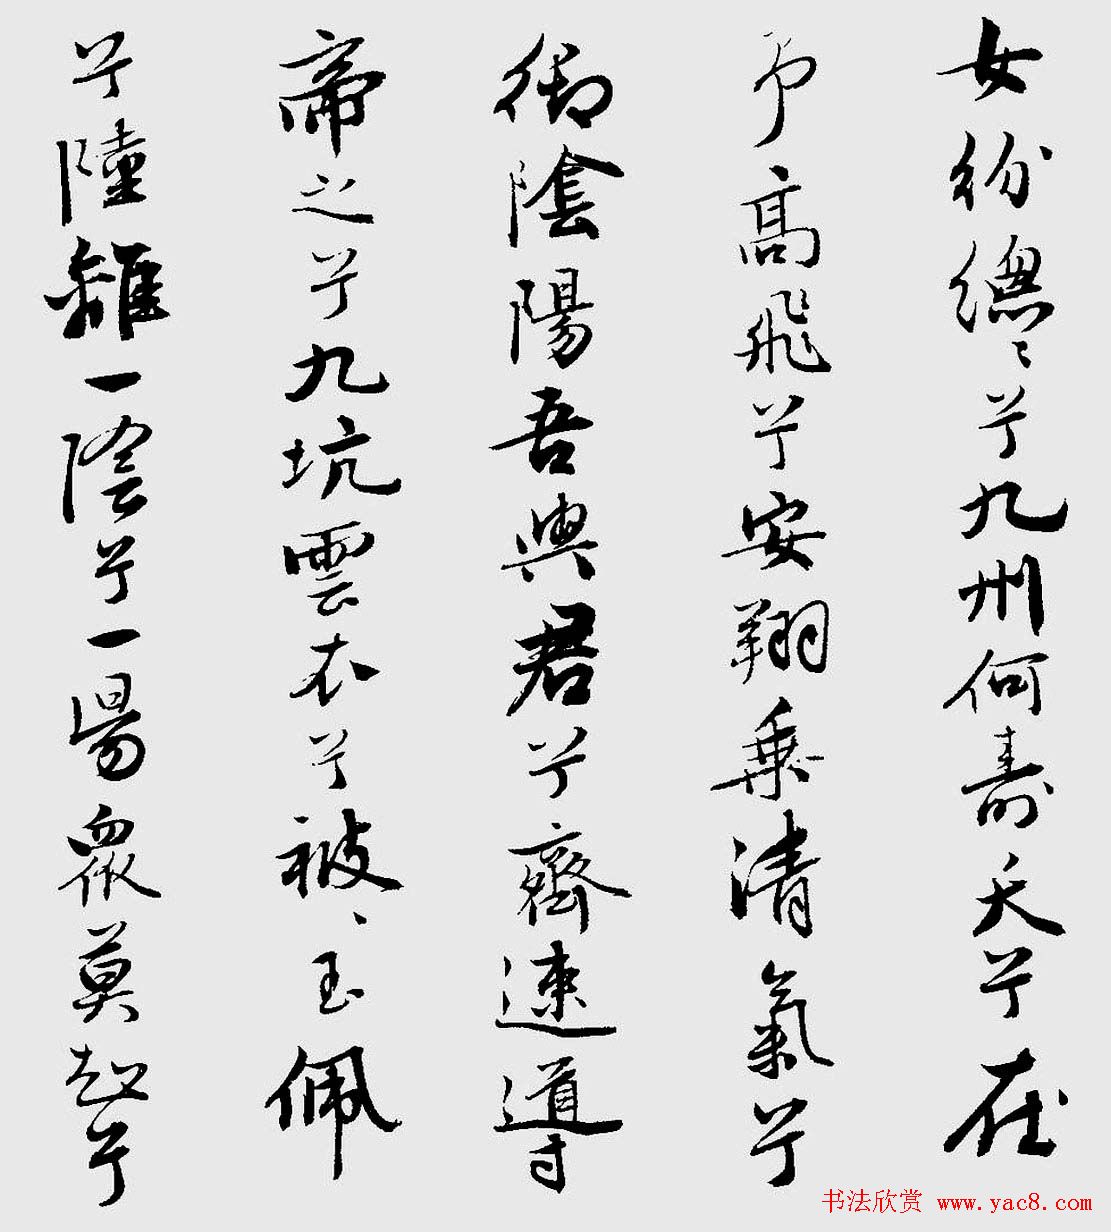 女紛總〻兮九州何壽夭兮在
予高飛兮安翔乗清氣兮
御陰陽吾與君兮齊速導
帝之兮九坑雲衣兮被〻玉佩
兮陸離一陰兮一陽衆莫知兮
书法欣赏 www.yac8.com